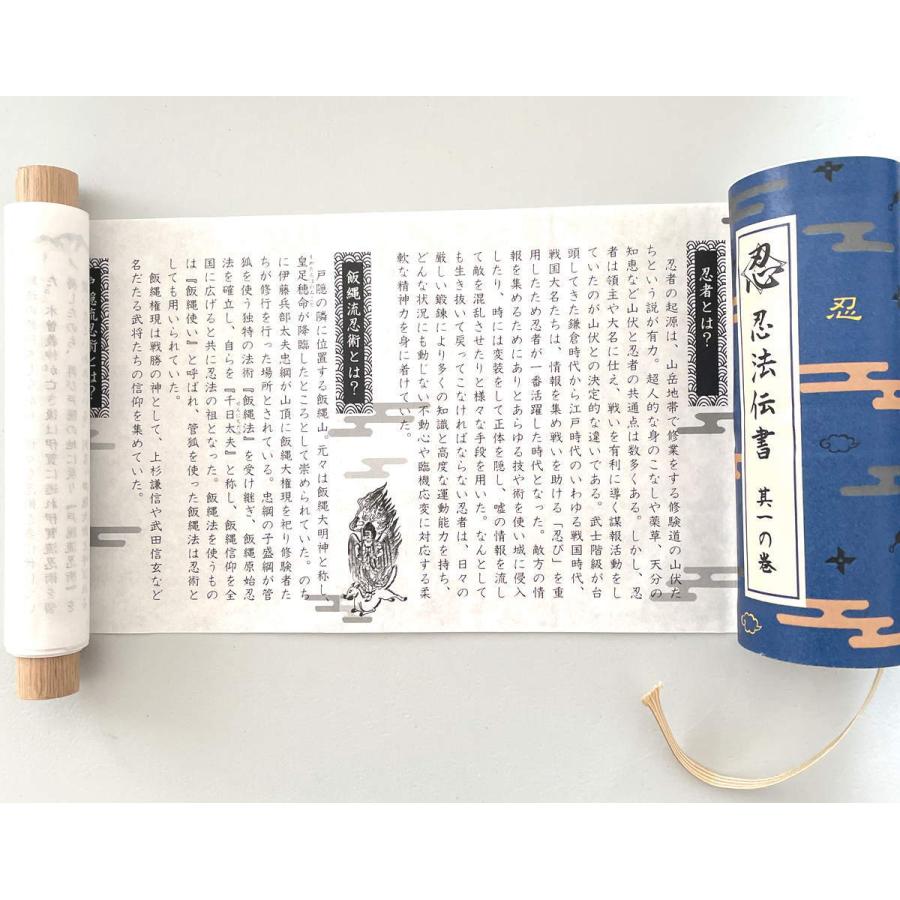 忍
忍 忍法伝書 其一の巻
忍者とは?
忍者の起源は、山岳地帯で修業をする修験道の山伏た
ちという説が有力。超人的な身のこなしや薬草、天分の
知恵など山伏と忍者の共通点は数多くある。しかし、忍
者は領主や大名に仕え、戦いを有利に導く諜報活動をし
ていたのが山伏との決定的な違いである。武士階級が台
頭してきた鎌倉時代から江戸時代のいわゆる戦国時代、
戦国大名たちは、情報を集め戦いを助ける「忍び」を重
用したため忍者が一番活躍した時代となった。敵方の情
報を集めるためにありとあらゆる技や術を使い城に侵入
したり、時には変装をして正体を隠し、嘘の情報を流し
て敵を混乱させたりと様々な手段を用いた。なんとして
も生き抜いて戻ってこなければならない忍者は、日々の
厳しい鍛錬により多くの知識と高度な運動能力を持ち、
どんな状況にも動じない不動心や臨機応変に対応する柔
軟な精神力を身に着けていた。
飯縄流忍術とは?
戸隠の隣に位置する飯縄山。元々は飯縄大明神と称し、
皇足穂命が降臨したところとして崇められていた。のち
に伊藤兵部太夫忠綱が山頂に飯縄大権現を祀り修験者た
ちが修行を行った場所とされている。忠綱の子盛綱が管
狐を使う独特の法術『飯縄法』を受け継ぎ、飯縄原始忍
法を確立し、自らを『千日太夫』と称し、飯縄信仰を全
国に広げると共に忍法の祖となった。飯縄法を使うもの
は『飯縄使い』と呼ばれ、管狐を使った飯縄法は忍術と
しても用いられていた。
飯縄権現は戦勝の神として、上杉謙信や武田信玄など
名だたる武将たちの信仰を集めていた。
隠流忍術とは?